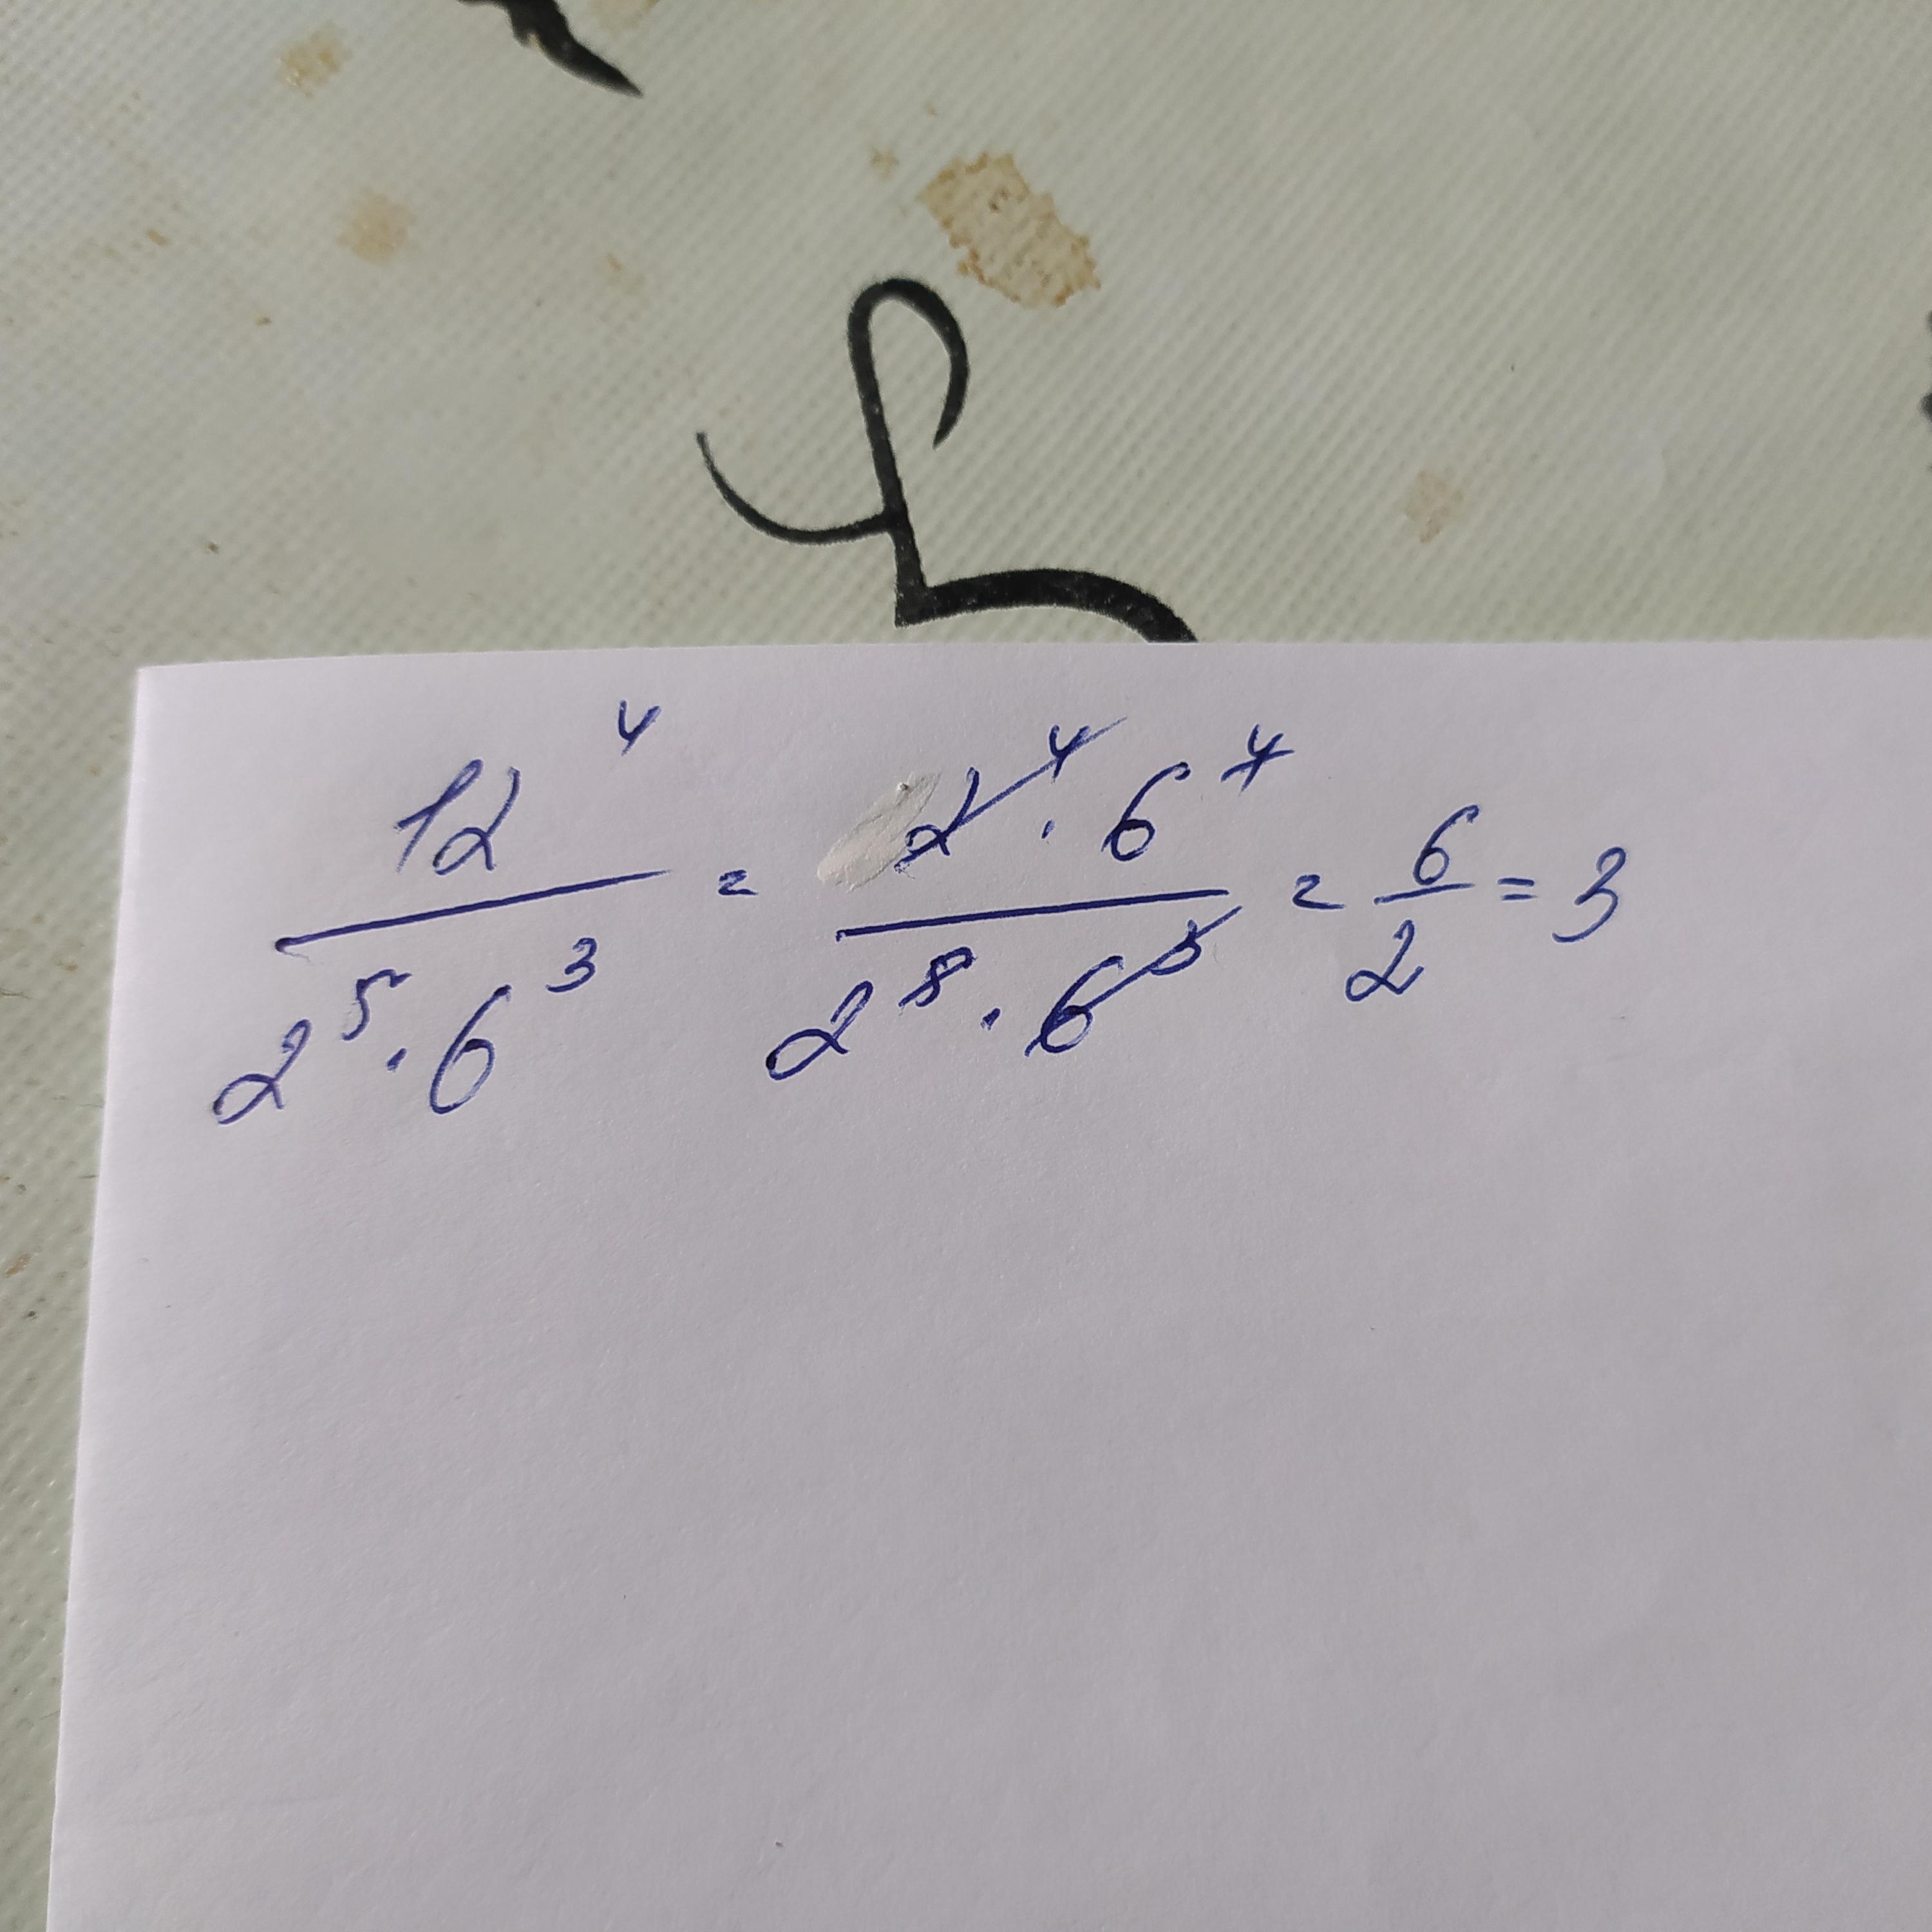 12⁴ / 2⁵·6³ = 2⁴·6⁴ / 2⁵·6³ = 6/2 = 3